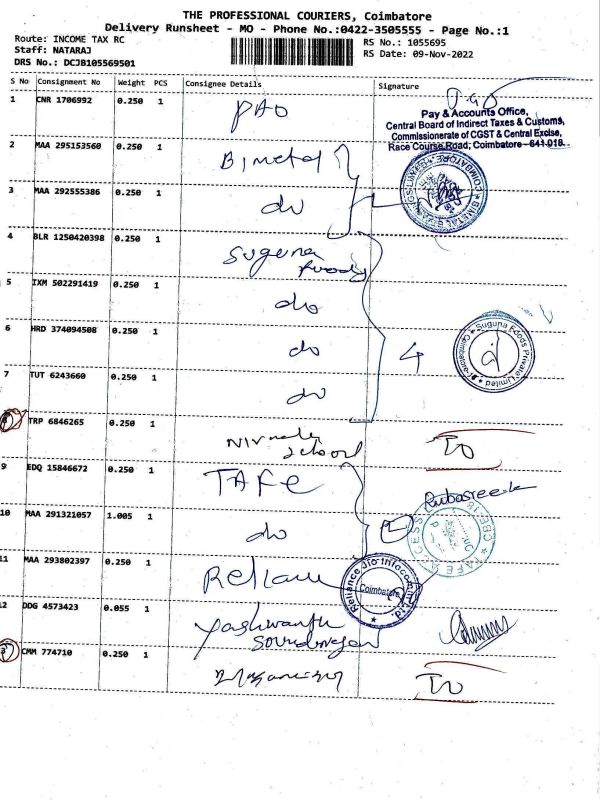 THE PROFESSIONAL COURIERS, Coimbatore
Delivery Runsheet - MO - Phone No.:0422-3505555 - Page No.:1
Route: INCOME TAX RC
RS No.: 1055695
Staff: NATARAJ
RS Date: 09-Nov-2022
DRS No.: DCJB105569501
S No Consignment No Weight PCS Consignee Details Signature
1 CNR 1706992 0.250 1 PAO
Pay & Accounts Office,
Central Board of Indirect Taxes & Customs,
Commissionerate of CGST & Central Excise,
Race Course Road, Coimbatore - 641 018.
2 MAA 295153560 0.250 1 Bimetal
3 MAA 292555386 0.250 1 do
4 BLR 1250420398 0.250 1 Suguna
foods
5 IXM 502291419 0.250 1 do
6 HRD 374094508 0.250 1 do 4
Suguna Foods Private Limited
Coimbatore
7 TUT 6243660 0.250 1 do
8 TRP 6846265 0.250 1 Nirmala
School
9 EDQ 15846672 0.250 1 TAFE Rubasree
10 MAA 291321057 1.005 1 do
TAFE ACCESS
11 MAA 293802397 0.250 1 Reliance
Reliance Jio Infocomm Ltd
Coimbatore
12 DDG 4573423 0.055 1 Yashwanth
Soundarajan
CMM 774710 0.250 1